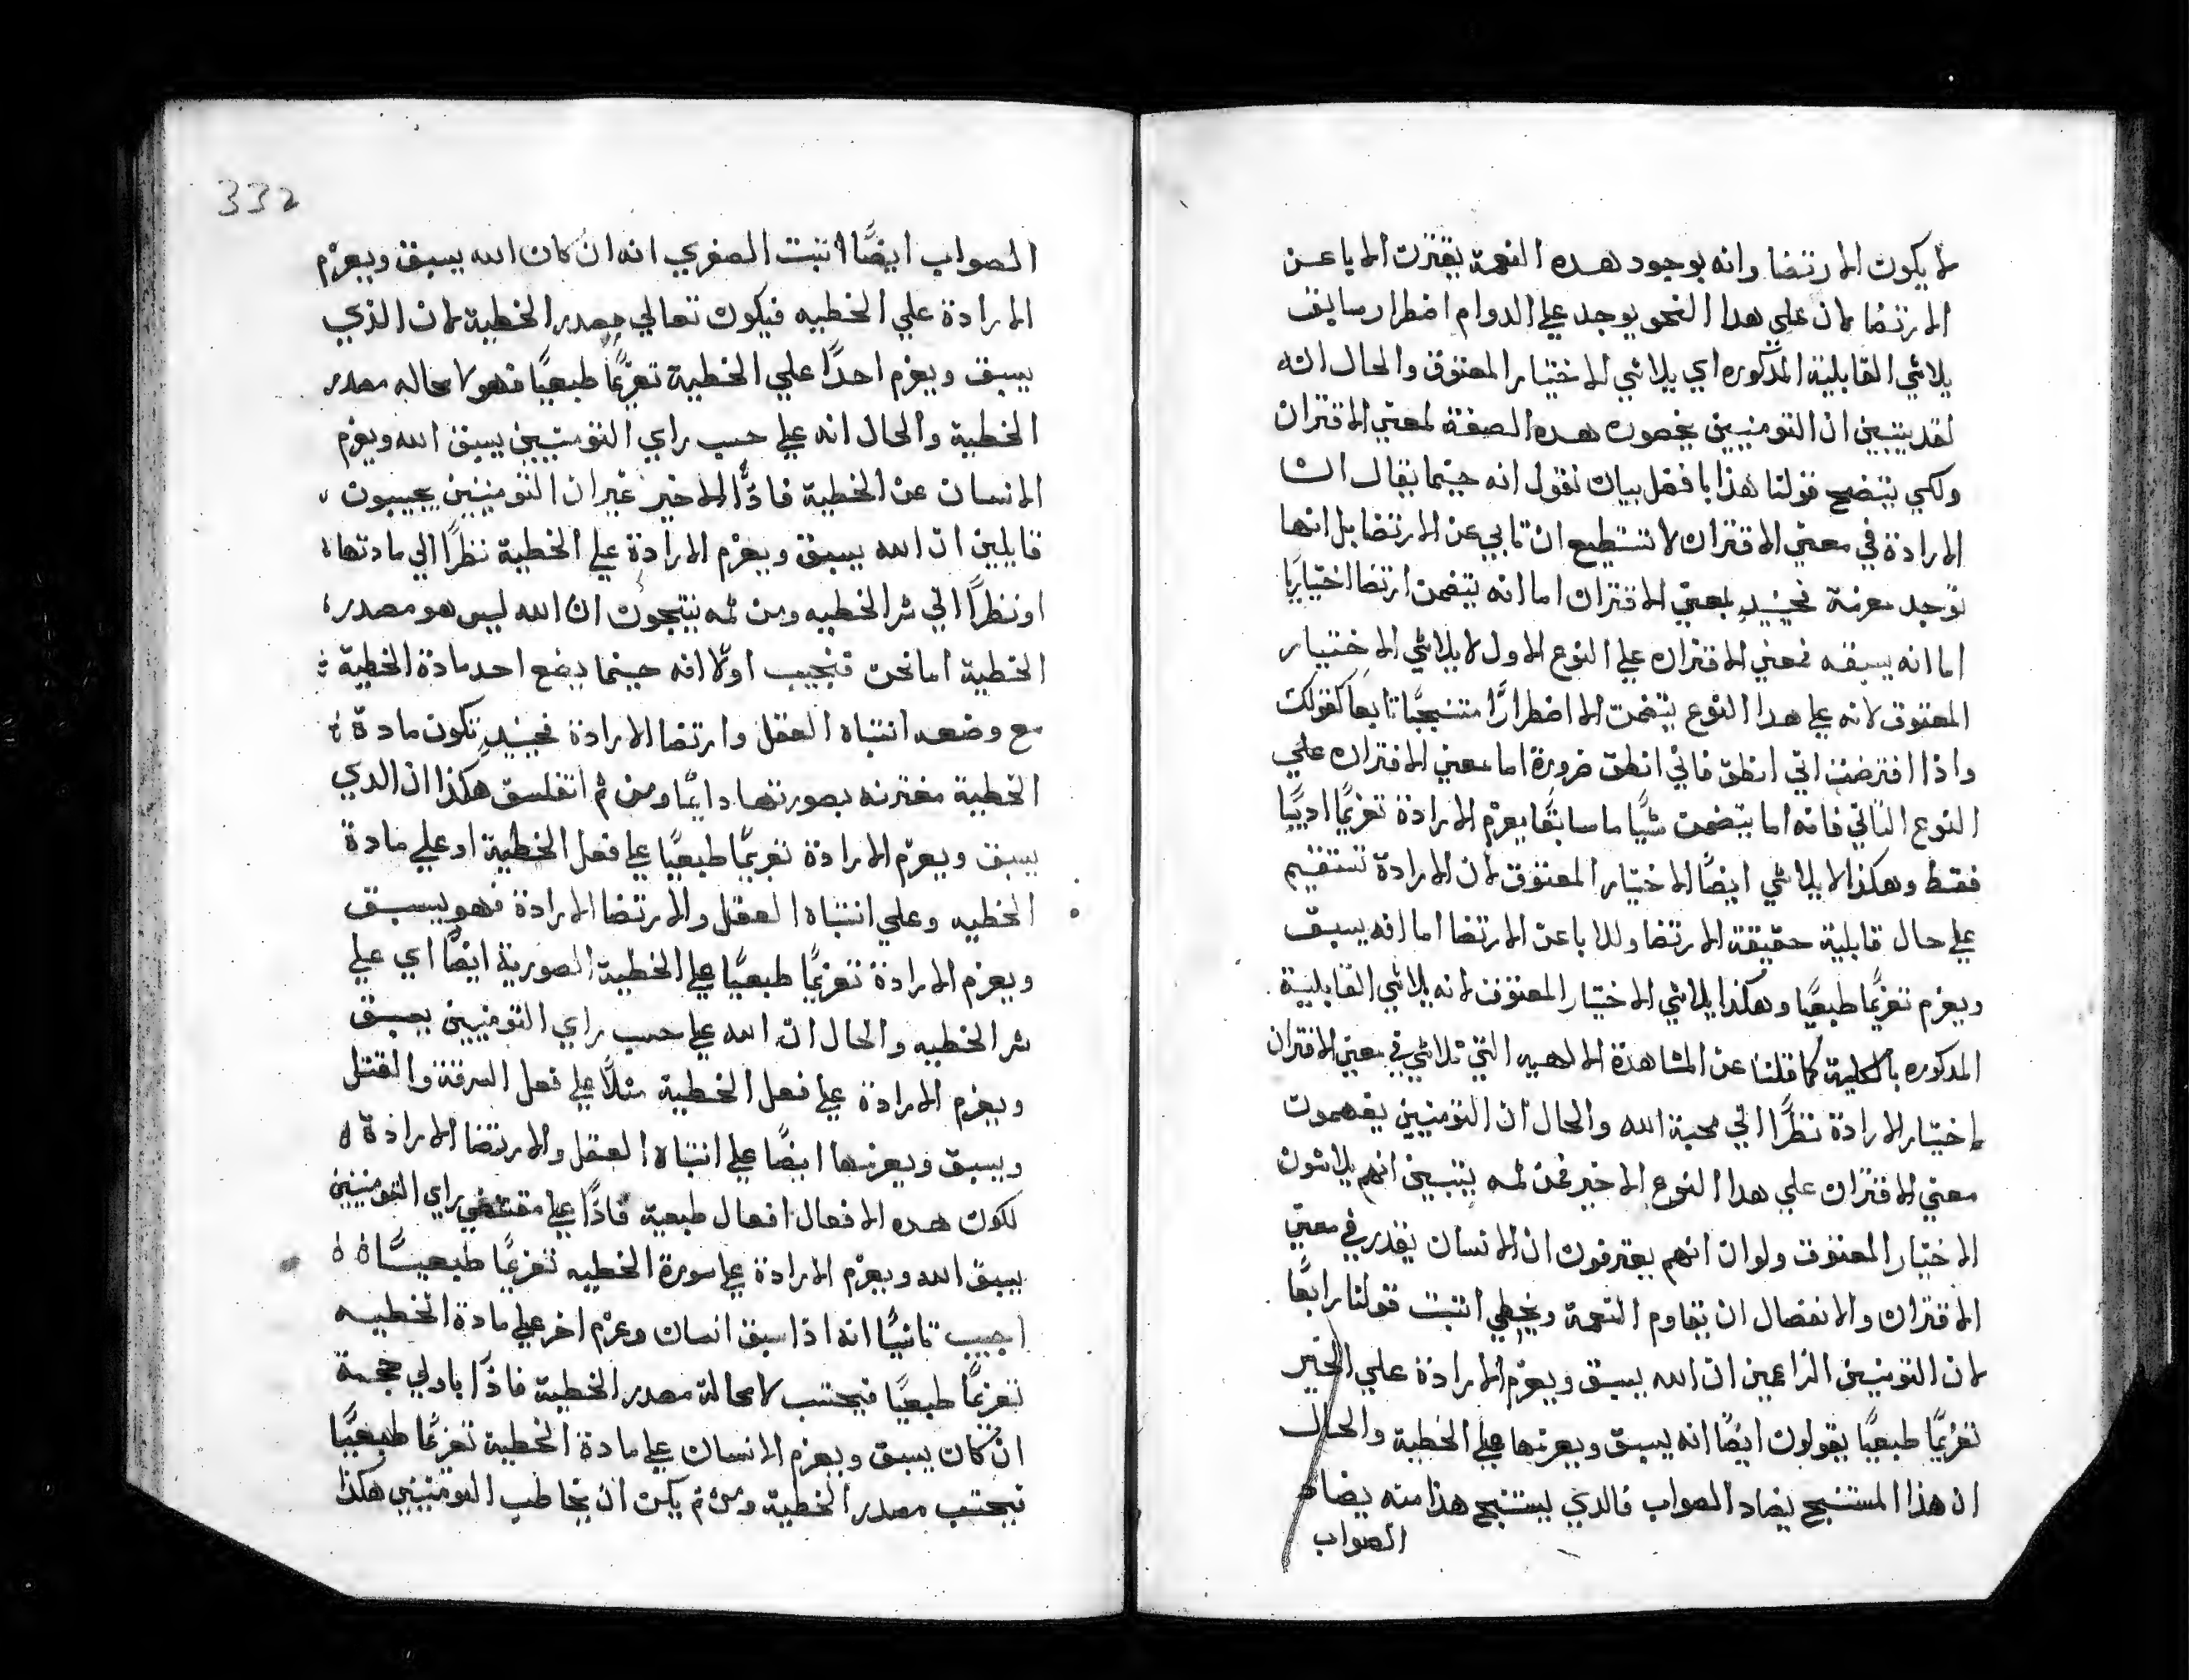 لا يكون الارتضا وانه بوجود هده النعمة يقترن الابا عن
الارتضا لان علي هدا النحو يوجد علي الدوام اضطرار سابق
يلاشي القابلية المدكوره اي يلاشي الاختيار المعتوق والحال انه
لقد يتبين ان التوميين يخصون هده الصفة لمعني الاقتران
ولكي يتضح قولنا هذا بافضل بيان نقول انه حينما يقال ان
الارادة في معني الاقتران لا تستطيع ان تابي عن الارتضا بل انها
توجد معزمة فحينيدٍ لمعني الاقتران اما انه يتضمن ارتضا اختياريًا
اما انه يسبقه فمعني الاقتران علي النوع الاول لا يلاشي الاختيار
المعتوق لانه علي هدا النوع يتضمن الا اضطرارًا مستنتجًا تابعًا كقولك
واذا افترضت اني انطق فاني انطق ضرورة اما معني الاقتران علي
النوع التاني فانه اما يتضمن شيًا ما سابقًا يعزم الارادة تعزيمًا ادبيًا
فقط وهكذا لا يلاشي ايضًا الاختيار المعتوق لان الارادة تستقيم
علي حال قابلية حقيقة الارتضا وللابا عن الارتضا اما انه يسبق
ويعزم تعزيمًا طبعيًا وهكذا يلاشي الاختيار المعتوق لانه يلاشي القابلية
المدكوره بالكلية كما قلنا عن المشاهدة الالهيه التي تلاشي في معني الاقتران
اختيار الارادة نظرًا الي محبة الله والحال ان التوميين يفهمون
معني الاقتران علي هدا النوع الاخير فمن تمه يتبين انهم يلاشون
الاختيار المعتوق ولو ان انهم يعترفون ان الانسان يقدر في معني
الاقتران والانفصال ان يقاوم النعمة ويخطي اتبت قولنا رابعًا
لان التوميين الزاعمين ان الله يسبق ويعزم الارادة علي الخير
تعزيمًا طبعيًا يقولون ايضًا انه يسبق ويعزمها علي الخطية والحال
ان هذا المستنتج يضاد الصواب فالدي يستنتج هذا منه يضاد
الصواب
332
الصواب ايضًا اتبت الصغري انه ان كان الله يسبق ويعزم
الارادة علي الخطيه فيكون تعالي مصدر الخطية لان الذي
يسبق ويعزم احدًا علي الخطية تعزيمًا طبعيًا فهو لا محاله مصدر
الخطية والحال انه علي حسب راي التوميين يسبق الله ويعزم
الانسان عن الخطية فاذًا الاخير غير ان التوميين يجيبون
قايلين ان الله يسبق ويعزم الارادة علي الخطية نظرًا الي مادتها
او نظرًا الي شر الخطيه ومن تمه ينتجون ان الله ليس هو مصدر
الخطية اما نحن فنجيب اولًا انه حينما يضع احد مادة الخطية
مع وضعه انتباه العقل وارتضا الارادة فحينيدٍ تكون مادة
الخطية مقترنه بصورتها دايمًا ومن تم اتفلسق هكذا ان الدي
يسبق ويعزم الارادة تعزيمًا طبعيًا علي فعل الخطية او علي مادة
الخطيه وعلي انتباه العقل والارتضا الارادة فهو يسبق
ويعزم الارادة تعزيمًا طبعيًا علي الخطية الصورية ايضًا اي علي
شر الخطيه والحال ان الله علي حسب راي التوميين يسبق
ويعزم الارادة علي فعل الخطية مثلًا علي فعل السرقة والقتل
ويسبق ويعزمها ايضًا علي انتباه العقل والارتضا الارادة
لكون هده الافعال افعال طبعية فاذًا علي مقتضي راي التوميين
يسبق الله ويعزم الارادة علي سورة الخطيه تعزيمًا طبعيًا
اجيب تانيًا انه اذا سبق انسان وعزم اخر علي مادة الخطيه
تعزيمًا طبعيًا فيحتسب لا محالة مصدر الخطية فاذًا باولي حجة
ان كان يسبق ويعزم الانسان علي مادة الخطية تعزيمًا طبعيًا
فيحتسب مصدر الخطية ومن تم يكن ان يخاطب التوميين هكذا